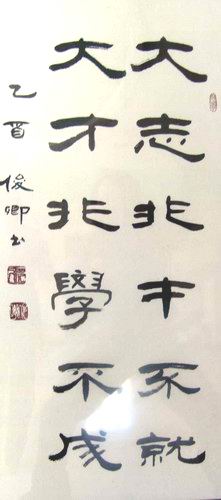 大志非才不就
大才非學不成
乙酉俊卿书